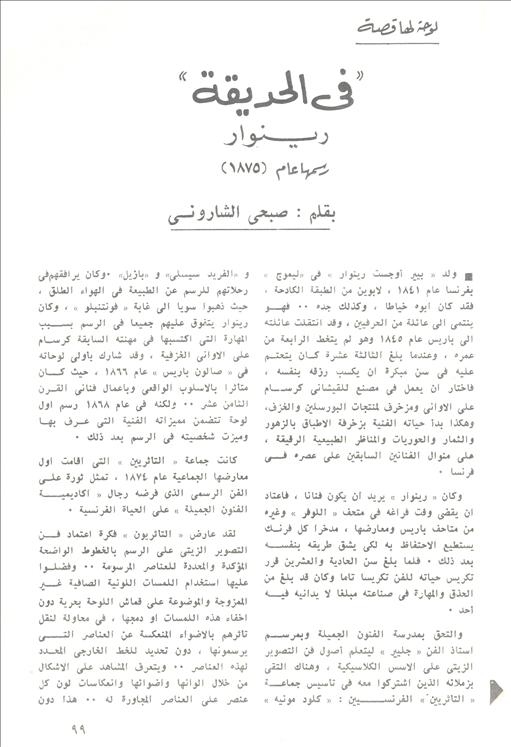 لوحة لها قصة
« فى الحديقة »
رينوار
رسمها عام (١٨٧٥)
بقلم : صبحى الشارونى
ولد « بيير أوجست رينوار » فى «ليموج »
بفرنسا عام ١٨٤١ لابوين من الطبقة الكادحة ،
فقد كان ابوه خياطا ، وكذلك جده ٠٠ فهو
ينتمى الى عائلة من الحرفيين ، وقد انتقلت عائلته
الى باريس عام ١٨٤٥ وهو لم يتخط الرابعة من
عمره ، وعندما بلغ الثالثة عشرة كان يتحتم
عليه فى سن مبكرة ان يكسب رزقه بنفسه ،
فاختار ان يعمل فى مصنع للقيشانى كرسام
على الاوانى ومزخرف لمنتجات البورسلين والخزف،
وهكذا بدأ حياته الفنية بزخرفة الاطباق بالزهور
والثمار والحوريات والمناظر الطبيعية الرقيقة ،
على منوال الفنانين السابقين على عصره فى
فرنسا ٠
وكان « رينوار » يريد أن يكون فنانا ، فاعتاد
ان يقضى وقت فراغه فى متحف « اللوفر » وغيره
من متاحف باريس ومعارضها ، مدخرا كل فرنك
يستطيع الاحتفاظ به لكى يشق طريقه بنفسه
بعد ذلك ٠ فلما بلغ سن الحادية والعشرين قرر
تكريس حياته للفن تكريسا تاما وكان قد بلغ من
الحذق والمهارة فى صناعته مبلغا لا يدانيه فيه
أحد ٠
والتحق بمدرسة الفنون الجميلة وبمرسم
استاذ الفن « جليير » ليتعلم أصول فن التصوير
الزيتى على الاسس الكلاسيكية ، وهناك التقى
بزملائه الذين اشتركوا معه فى تاسيس جماعة
« التاثريين» الفرنسيين : « كلود مونيه »
و « الفريد سيسلى» و «بازيل» ٠وكان يرافقهم فى
رحلاتهم للرسم عن الطبيعة فى الهواء الطلق ،
حيث ذهبوا سويا الى غابة « فونتنبلو » ، وكان
رينوار يتفوق عليهم جميعا فى الرسم بسبب
المهارة التى اكتسبها فى مهنته السابقة كرسام
على الاوانى الخزفية ، وقد شارك بأولى لوحاته
فى « صالون باريس » عام ١٨٦٦ ، حيث كان
متأثرا بالاسلوب الواقعى وباعمال فنانى القرن
الثامن عشر ٠٠ ولكنه فى عام ١٨٦٨ رسم اول
لوحة تتضمن مميزاته الفنية التى عرف بها
وميزت شخصيته فى الرسم بعد ذلك ٠
كانت جماعة « التاثريين » التى اقامت اول
معارضها الجماعية عام ١٨٧٤ ، تمثل ثورة على
الفن الرسمى الذى فرضه رجال « اكاديمية
الفنون الجميلة » على الحياة الفرنسية ٠
لقد عارض « التاثريون » فكرة اعتماد فن
التصوير الزيتى على الرسم بالخطوط الواضحة
المؤكدة والمحددة للعناصر المرسومة ٠٠ وفضلوا
عليها استخدام اللمسات اللونية الصافية غير
الممزوجة والموضوعة على قماش اللوحة بحرية دون
اخفاء هذه اللمسات او دمجها ، فى محاولة لنقل
تاثرهم بالاضواء المنعكسة عن العناصر التى
يرسمونها ، دون تحديد للخط الخارجى المحدد
لهذه العناصر ٠٠ ويتعرف المشاهد على الاشكال
من خلال الوانها واضوائها وانعكاسات لون كل
عنصر على العناصر المجاورة له ٠٠ هذا دون
٩٩